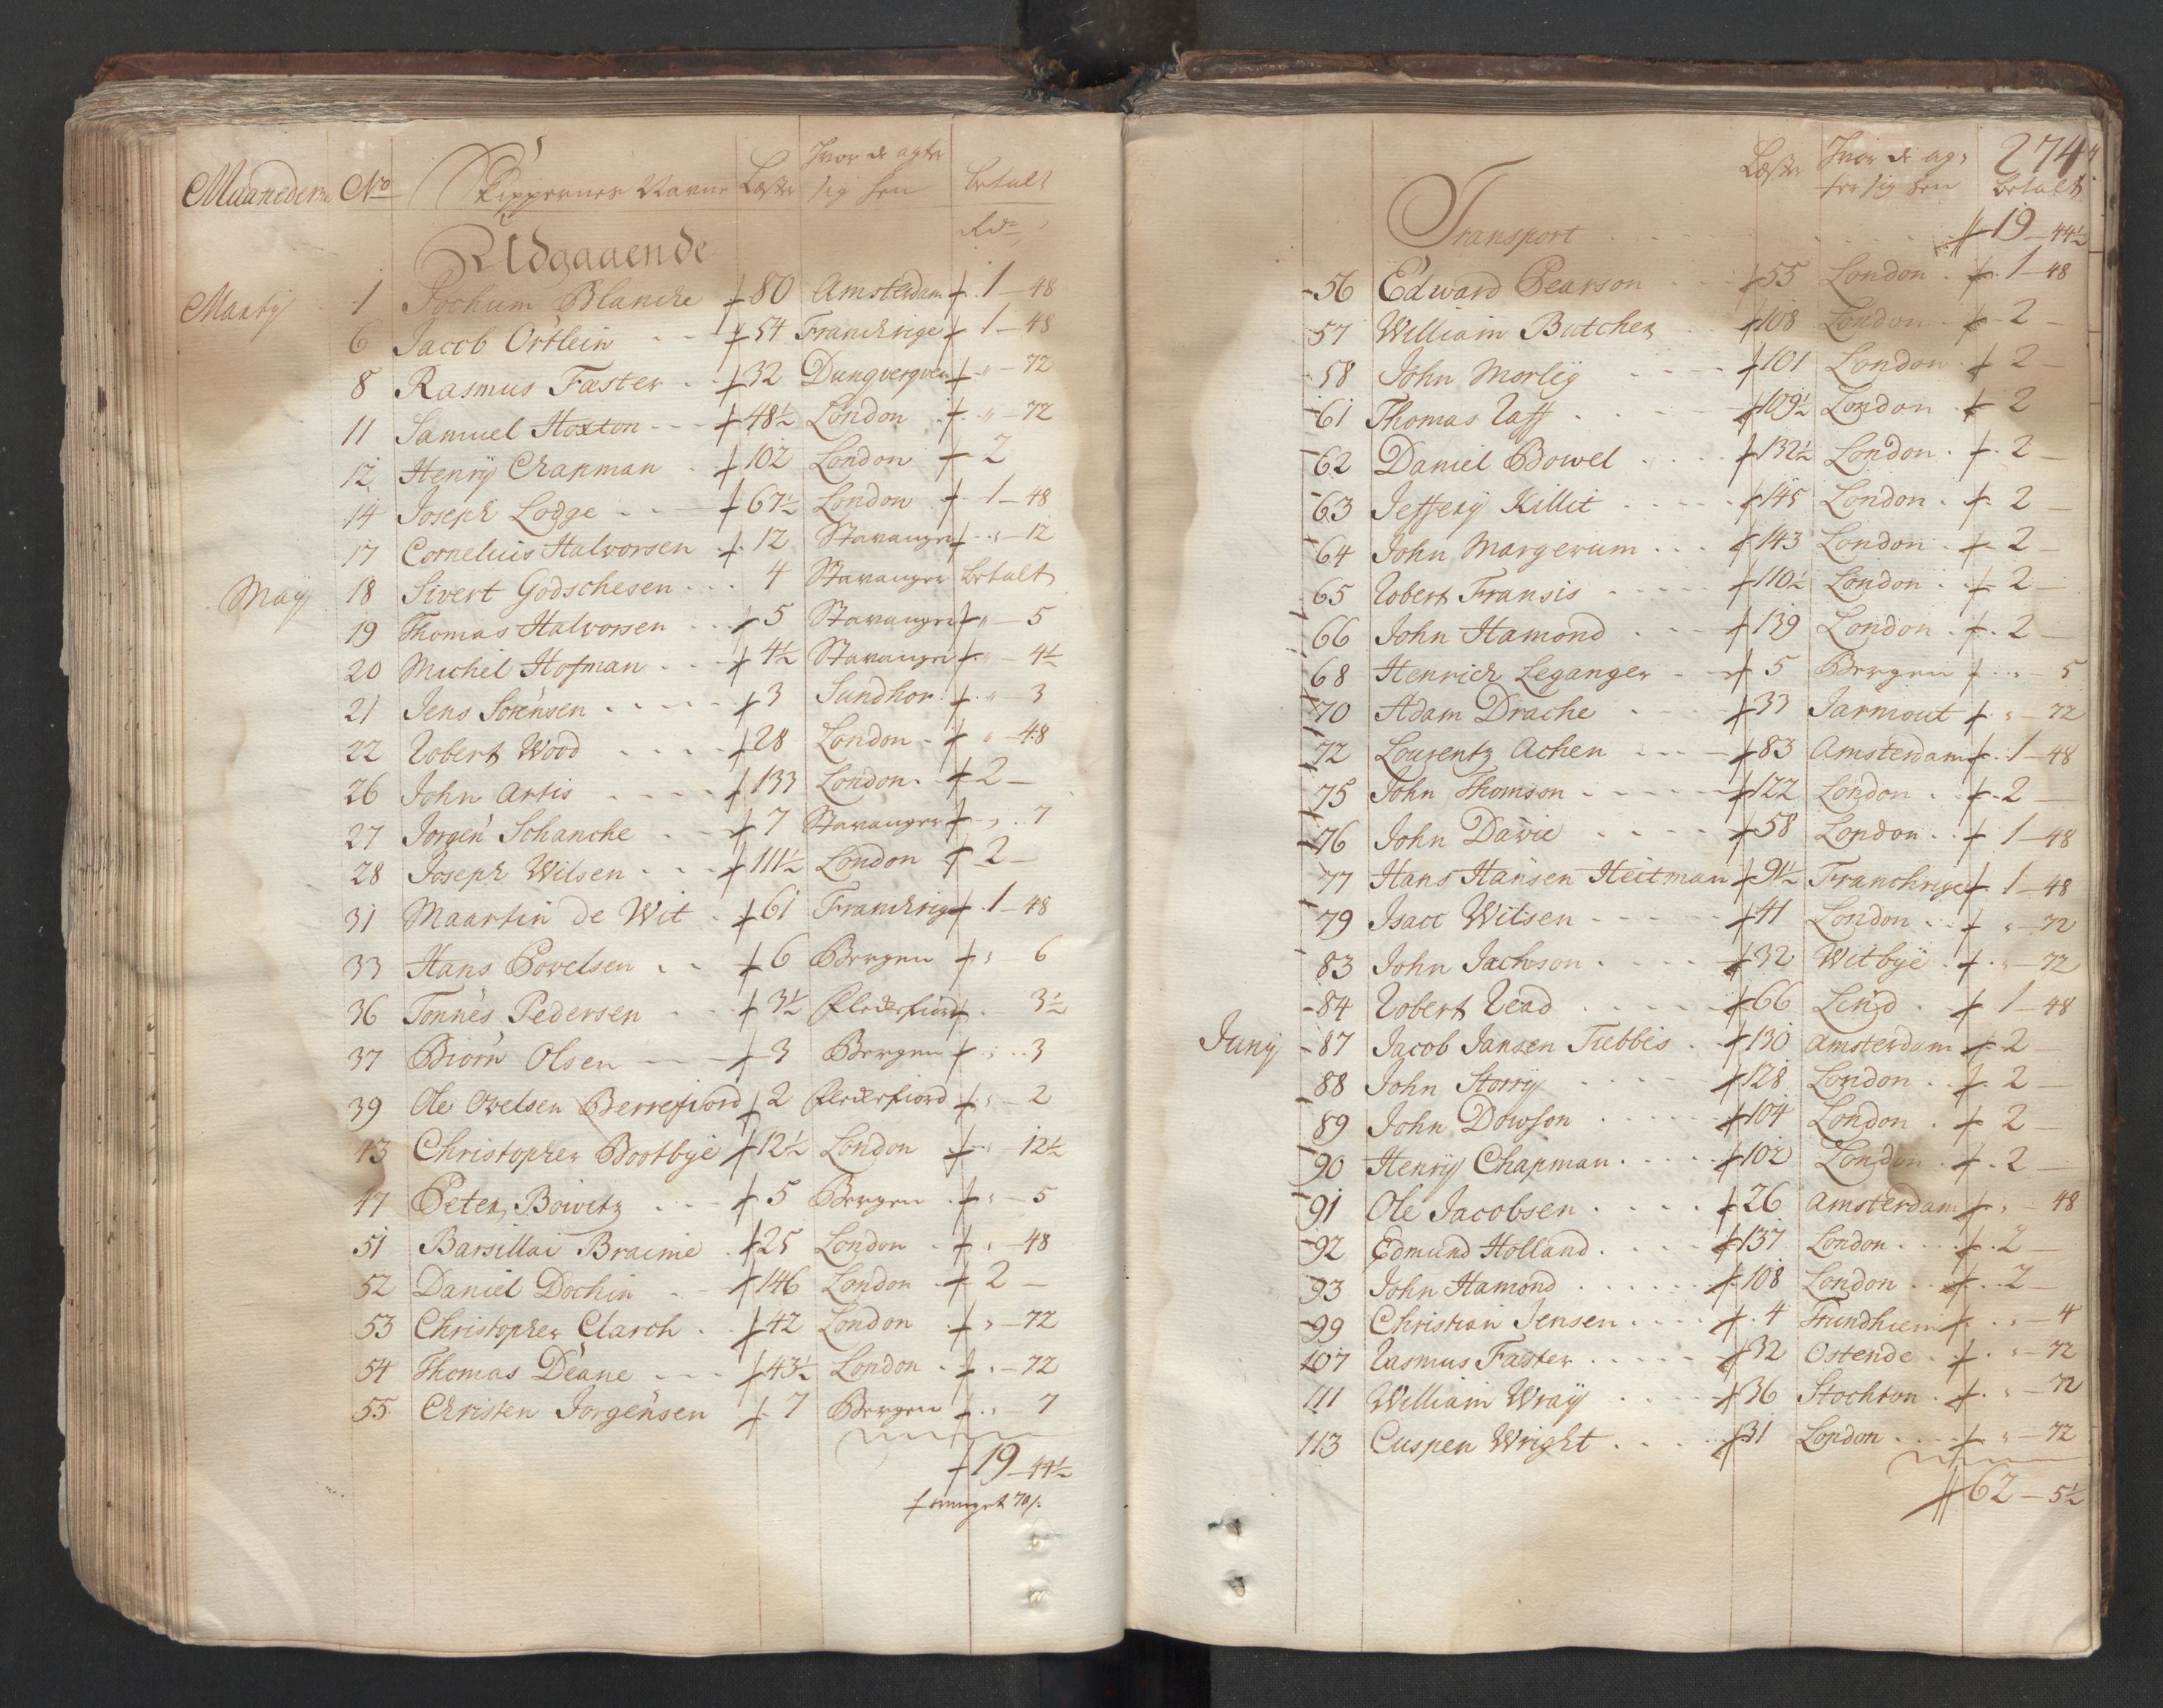 Maanederne No Skippernes Navne Læster Hvor de agter sig hen betalt
Rdr
Udgaaende
Martij 1 Jochum Blancke 80 Amsterdam 1 - 48
6 Jacob Örtlein 54 Franckrige 1 - 48
8 Rasmus Faster 32 Dunqverqven " - 72
11 Samuel Hoxton 48½ London " - 72
12 Henrÿ Chapman 102 London 2
14 Joseph Lodge 67½ London 1 - 48
17 Cornelius Halvorsen 12 Stavanger " - 12
May 18 Sivert Godschesen 4 Stavanger betalt
19 Thomas Halvorsen 5 Stavanger " - 5
20 Michel Hofman 4½ Stavanger " - 4½
21 Jens Sörensen 3 Sundhor: " - 3
22 Robert Wood 28 London " - 48
26 John Artis 133 London 2 -
27 Jörgen Schancke 7 Stavanger " 7
28 Joseph Wilsen 111½ London 2 -
31 Maartin de Wit 61 Franckrige 1 - 48
33 Hans Povelsen 6 Bergen " 6
36 Tönnes Pedersen 3½ Flechefiord 3½
37 Biörn Olsen 3 Bergen " 3
39 Ole Ovelsen Berrefiord 2 Flechefiord " - 2
43 Christopher Bootbye 12½ London " 12½
47 Peter Bowitz 5 Bergen " - 5
51 Barsillai Braimie 25 London " - 48
52 Daniel Dochin 146 London 2 -
53 Christopher Clarch 42 London " - 72
54 Thomas Deane 43½ London " - 72
55 Christen Jörgensen 7 Bergen " 7
19 - 44½
274
Læster Hvor de agter sig hen betalt
Transport 19 - 44½
56 Edward Pearson 55 London 1 - 48
57 William Butcher 108 London 2 -
58 John Morley 101 London 2 -
61 Thomas Raff 109½ London 2
62 Daniel Bowel 132½ London 2 -
63 Jeffery Killit 145 London 2 -
64 John Margerum 143 London 2 -
65 Robert Fransis 110½ London 2 -
66 John Hamond 139 London 2 -
68 Henrich Leganger 5 Bergen " - 5
70 Adam Drache 33 Jarmout " - 72
72 Lourentz Achen 83 Amsterdam 1 - 48
75 John Thomson 122 London 2 -
76 John Davie 58 London 1 - 48
77 Hans Hansen Heitman 91½ Franchrige 1 - 48
79 Isacc Wilsen 41 London " - 72
83 John Jachson 32 Witbÿe " - 72
84 Robert Read 66 Lind 1 - 48
Junij 87 Jacob Jansen Tiebbes 130 Amsterdam 2 -
88 John Storrÿ 128 London 2 -
89 John Dowson 104 London 2 -
90 Henrÿ Chapman 102 London 2 -
91 Ole Jacobsen 26 Amsterdam " - 48
92 Edmund Holland 137 London 2 -
93 John Hamond 108 London 2
99 Christian Jensen 4 Trundhiem " - 4
107 Rasmus Faster 32 Ostende " - 72
111 William Wraÿ 36 Stochton " - 72
113 Cuspen Wright 31 London " - 72
62 - 5½